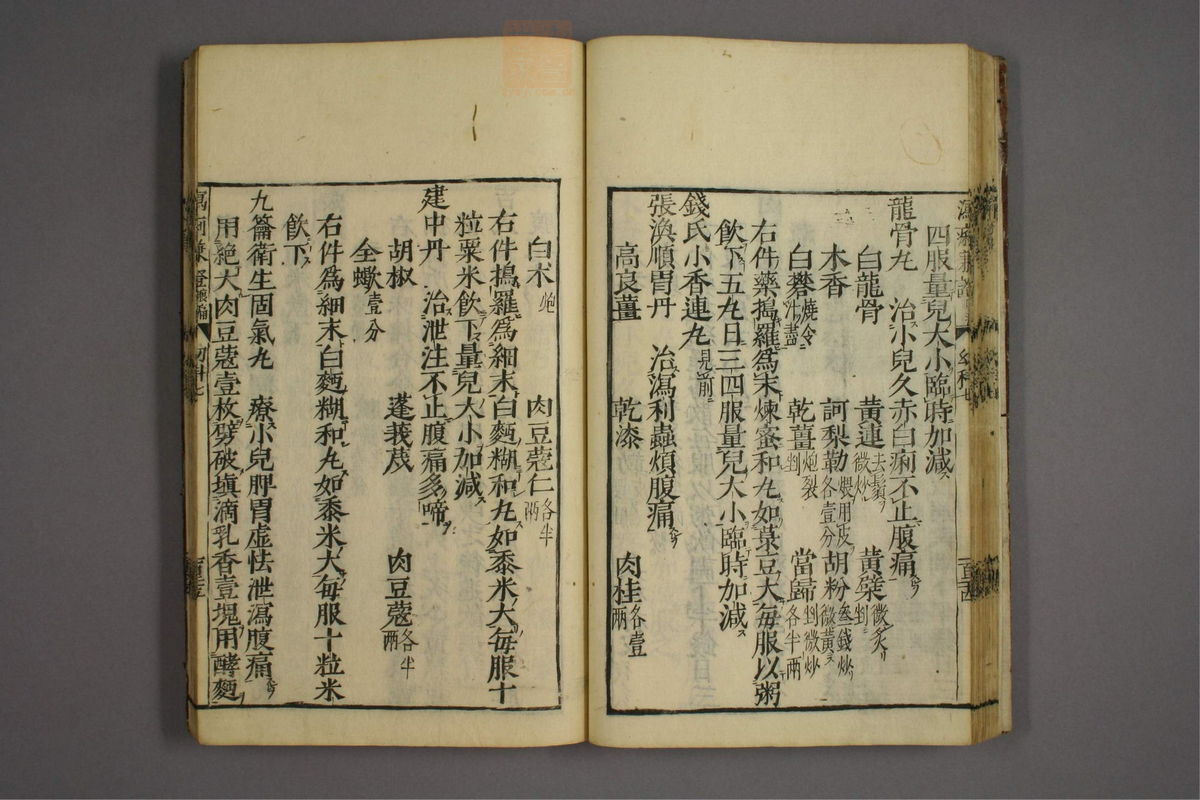 四服量兒大小臨時加減
龍骨丸　治小兒久赤白痢不止腹痛
白龍骨　黃連去鬚微炒　黃蘗微炙剉
木香　訶梨勒煨用皮各壹分　胡粉叁錢炒微黃
白礬燒令汁盡　乾薑炮裂剉　當歸剉微炒各半兩
右件藥搗羅爲末煉蜜和丸如菉豆大每服以粥
飲下五丸日三四服量兒大小臨時加減
錢氏小香連丸見前
張渙順胃丹　治瀉利蟲煩腹痛
高良薑　乾漆　肉桂各壹兩
白朮炮　肉豆蔻仁各半兩
右件搗羅爲細末白麪糊和丸如黍米大每服十
粒粟米飲下量兒大小加減
建中丹　治泄注不止腹痛多啼
胡椒　蓬莪茂　肉豆蔻各半兩
全蠍壹分
右件爲細末白麪糊和丸如黍米大每服十粒米
飲下
九籥衛生固氣丸　療小兒脾胃虛怯泄瀉腹痛
用絕大肉豆蔻壹枚劈破塡滴乳香壹塊用酵麪